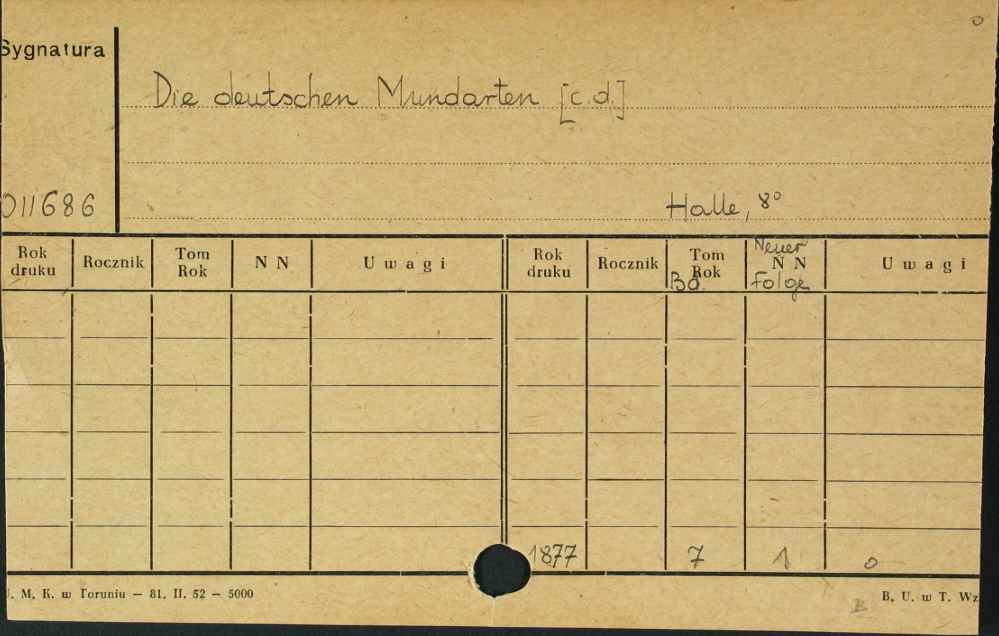 o
Sygnatura
Die deutschen Mundarten [c.d.]
011686
Halle, 8°
Rok druku Rocznik Tom Rok N N Uwagi Rok druku Rocznik Tom Rok Bd. Neuer N N Folge Uwagi
1877 7 1 o
U. M. K. w Toruniu — 81. II. 52 — 5000
B
B. U. w T. Wz